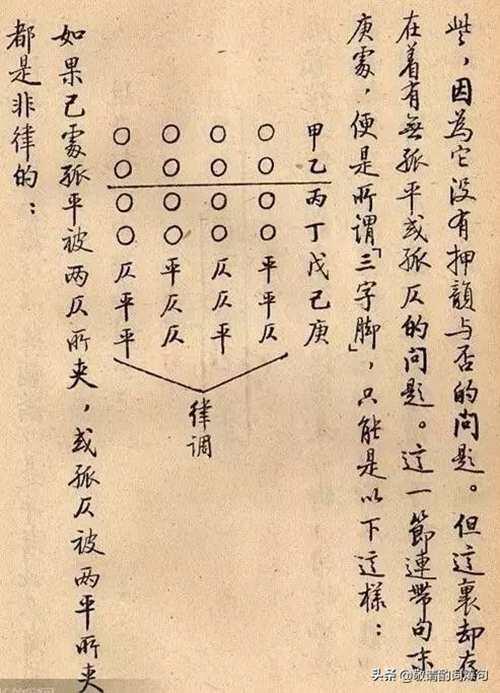 些，因為它没有押韻与否的问题。但這裏却存
在着有無孤平或孤仄的问题。这一節連带句末
庚處，便是所谓「三字脚」，只能是以下这樣：
甲乙丙丁戊己庚
○○○○平平仄
○○○○仄仄平
○○○○平仄仄
○○○○仄平平
律调
如果己處孤平被两仄所夹，或孤仄被两平所夹
都是非律的：
头条